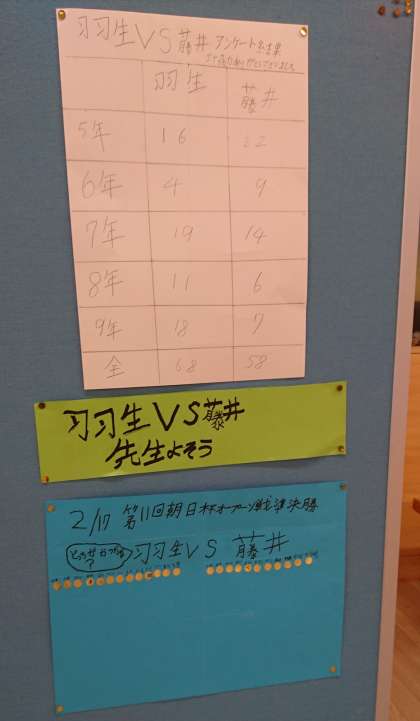 羽生VS藤井 アンケート結果
ご協力ありがとうございました
羽生 藤井
5年 16 22
6年 4 9
7年 19 14
8年 11 6
9年 18 7
全 68 58
羽生VS藤井
先生よそう
2/17 第11回朝日杯オープン戦準決勝
どっちがかつかな?
羽生VS 藤井